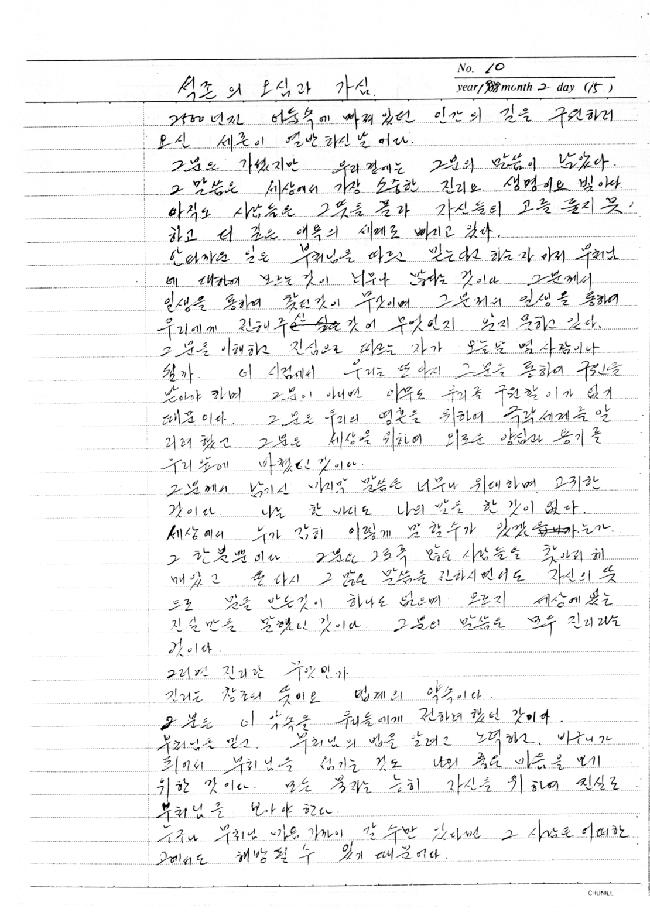 No. 10
석존의 오심과 가심.
year 1988 month 2 day (15)
2500년전 어둠속에 빠져 있던 인간의 길을 구원하러
오신 세존이 열반하신 날이다.
그분은 가셨지만 우리 곁에는 그분의 말씀이 남았다.
그 말씀은 세상에서 가장 소중한 진리요 생명이요 빛이다
아직도 사람들은 그 뜻을 몰라 자신들의 고를 풀지 못
하고 더 깊은 애욕의 세계로 빠지고 있다.
안타까운 일은 부처님을 따르고 믿는다고 하는 자 마저 부처님
에 대하여 모르는 것이 너무나 많다는 것이다 그분께서
인생을 통하여 찾던것이 무엇이며 그분께서 인생을 통하여
우리에게 전해주신 것이 무엇인지 알지 못하고 있다.
그분을 이해하고 진심으로 따르는 자가 오늘날 몇 사람이나
될까. 이 시점에서 우리는 또 다시 그분을 통하여 구원을
받아야 하며 그분이 아니면 아무도 우리를 구원할 이가 없기
때문이다. 그분은 우리의 영혼을 위하여 극락세계를 알
리려 했고 그분은 세상을 위하여 외로운 양심과 용기를
우리 앞에 바쳤던 것이다.
그분께서 남기신 마지막 말씀은 너무나 위대하며 고귀한
것이다 나는 한 마디도 나의 말을 한 것이 없다.
세상에서 누가 감히 이렇게 말 할수가 있겠는가.
그 한분뿐이다 그분은 그토록 많은 사람들을 찾아다 헤
매었고 또 다시 그 많은 말씀을 전하시면서도 자신의 뜻
으로 말을 만든것이 하나도 없으며 오로지 세상에 있는
진실만을 말했던 것이다 그분의 말씀은 모두 진리라는
것이다.
그러면 진리란 무엇인가
진리는 창조의 뜻이요 법계의 약속이다.
그분은 이 약속을 우리들에게 전하려 했던 것이다.
부처님을 믿고, 부처님의 법을 알려고 노력하고,
되어서 부처님을 섬기는 것도 나의 좋은 마음을 얻기
위한 것이다. 모든 불자는 능히 자신을 위하여 진실로
부처님을 보아야 한다.
누구나 부처님 가까이 갈 수만 있다면 그 사람은 어떠한
고에서도 해방될 수 있기 때문이다.